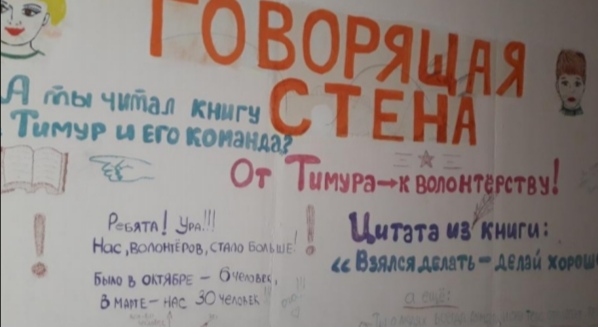 ГОВОРЯЩАЯ
СТЕНА
А ты читал книгу
Тимур и его команда?
От Тимура→к волонтёрству!
Ребята! Ура!!!
Нас, волонтёров, стало больше!
Было в октябре – 6 человек,
в марте – нас 30 человек!!!
Цитата из книги:
"Взялся делать – делай хорошо
а ещё: